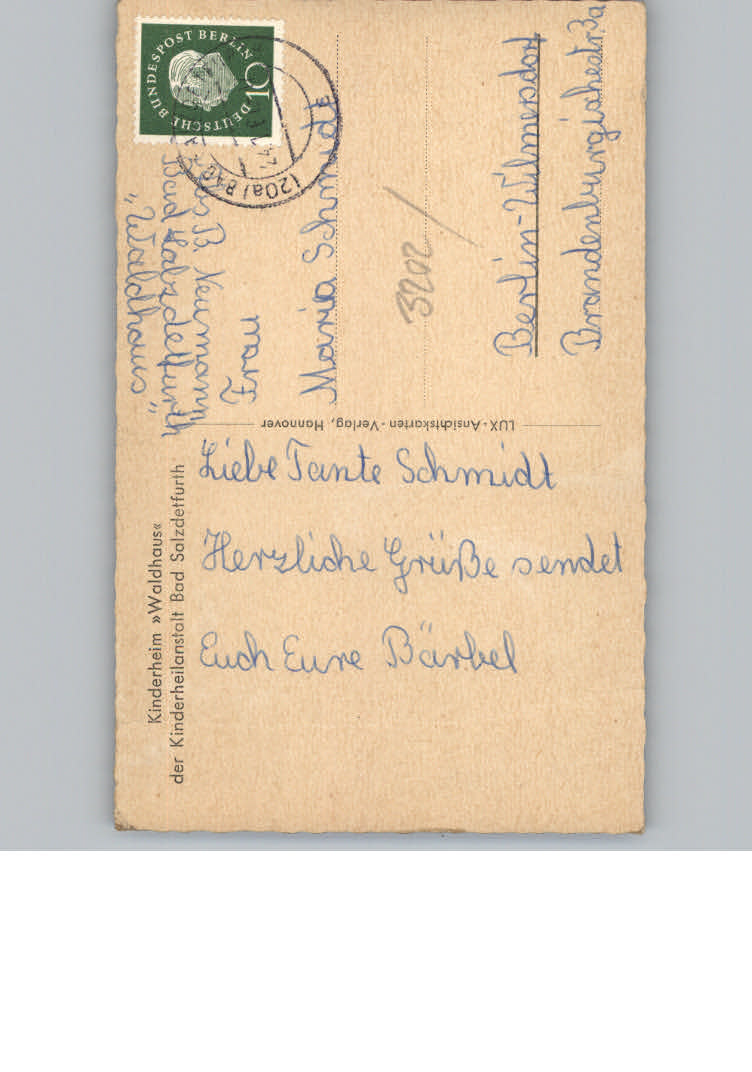 Kinderheim »Waldhaus«
der Kinderheilanstalt Bad Salzdetfurth
Liebe Tante Schmidt
Herzliche Grüße sendet
Euch Eure Bärbel
LUX - Ansichtskarten - Verlag, Hannover
DEUTSCHE BUNDESPOST BERLIN
10
(20a) BAD
B. Neumann
Bad Salzdetfurth
"Waldhaus"
Frau
Maria Schmidt
3202
Berlin-Wilmersdorf
Brandenburgischestr. 3a